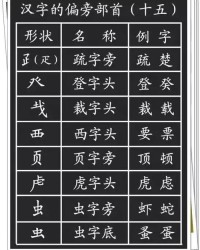 汉字的偏旁部首（十五）
形状 名称 例字
𤴔(疋) 疏字旁 疏 楚
癶 登字头 登 凳
𢦏 栽字头 裁 载
覀 西字头 要 票
页 页字旁 顶 顿
虍 虎字头 虎 虑
虫 虫字旁 虾 蛇
虫 虫字底 蚤 蛋